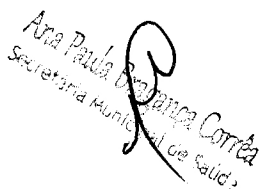 Ana Paula Bragança Corrêa
Secretária Municipal de Saúde